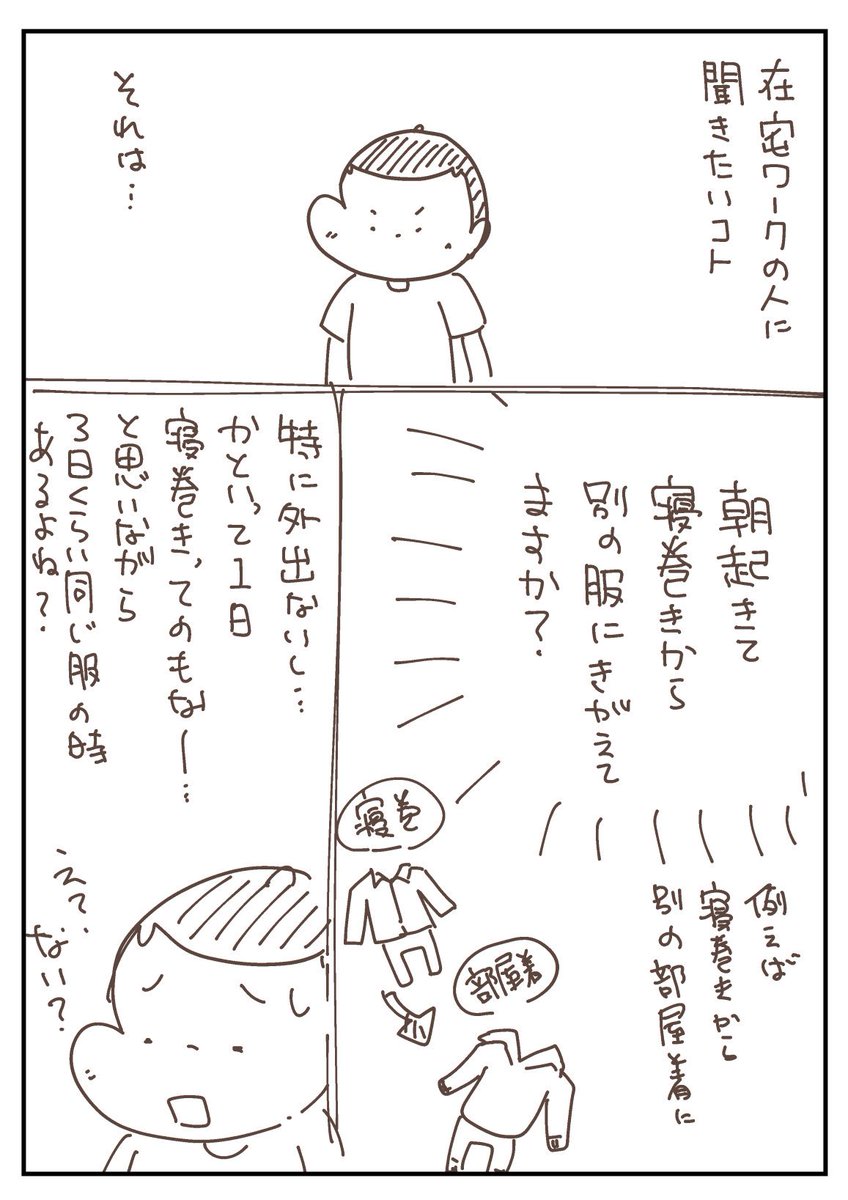 在宅ワークの人に
聞きたいコト
それは…
朝起きて
寝巻きから
別の服にきがえて
ますか?
例えば
寝巻きから
別の部屋着に
寝巻
部屋着
特に外出ないし…
かといって1日
寝巻き、てのもなー…
と思いながら
3日くらい同じ服の時
あるよね?
え?、
ない?